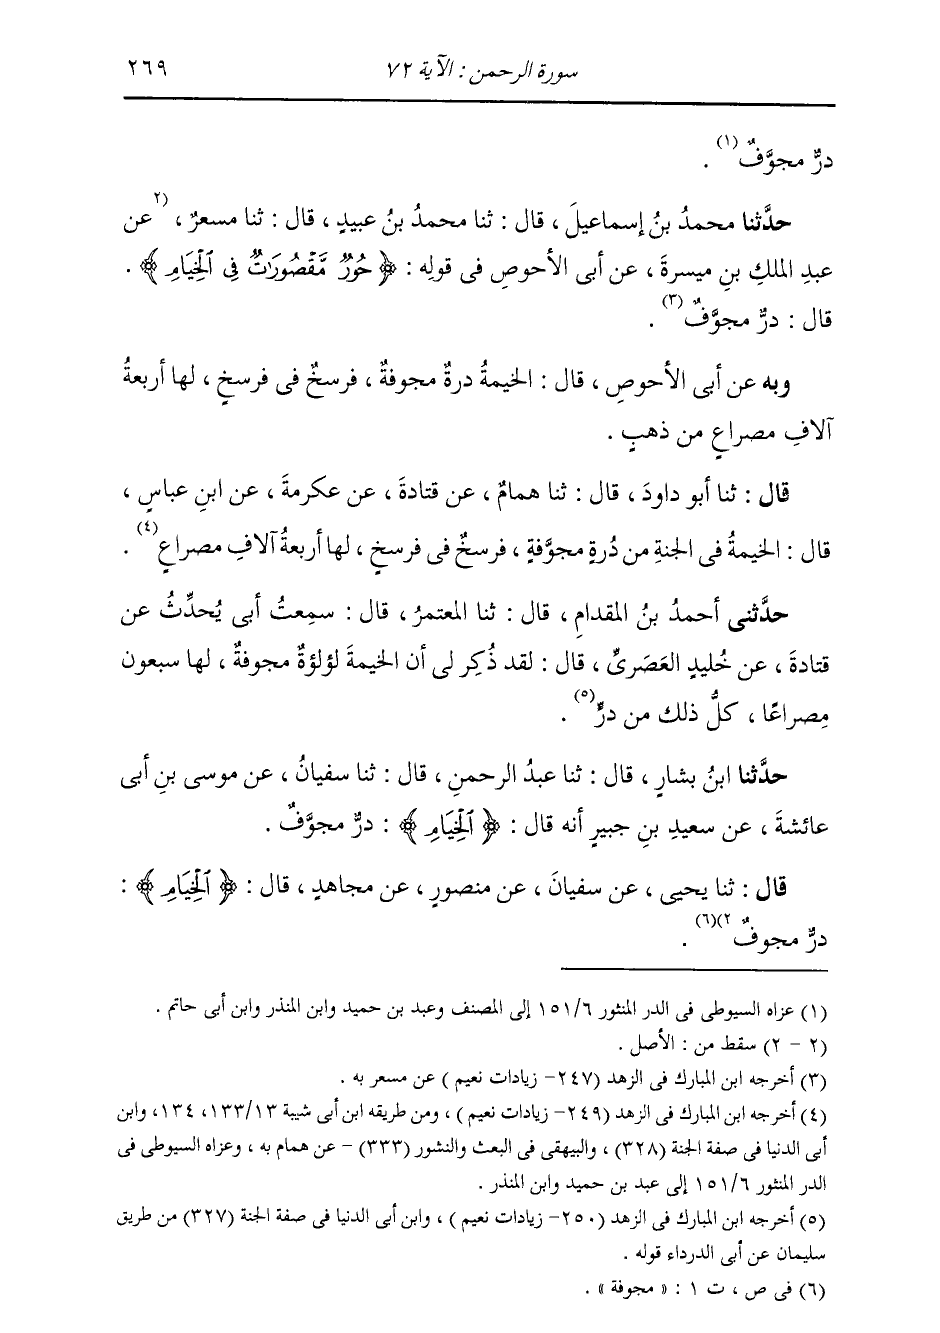 سورة الرحمن : الآية ٧٢
٢٦٩
درٌّ مجوَّفٌ (١) .
حدَّثنا محمدُ بنُ إسماعيلَ ، قال : ثنا محمدُ بنُ عبيدٍ ، قال : ثنا مسعرٌ ، (٢ عن
عبدِ الملكِ بنِ ميسرةَ ، عن أبى الأحوصِ فى قولِه : ﴿ حُورٌ مَّقْصُورَاتٌ فِى ٱلْخِيَامِ ﴾ .
قال : درٌّ مجوَّفٌ (٣) .
وبه عن أبى الأحوصِ ، قال : الخيمةُ درةٌ مجوفةٌ ، فرسخٌ فى فرسخٍ ، لها أربعةُ
آلافِ مصراعٍ من ذهبٍ .
قال : ثنا أبو داودَ ، قال : ثنا همامٌ ، عن قتادةَ ، عن عكرمةَ ، عن ابنِ عباسٍ ،
قال : الخيمةُ فى الجنةِ من دُرةٍ مجوَّفةٍ ، فرسخٌ فى فرسخٍ ، لها أربعةُ آلافِ مصراعٍ (٤) .
حدَّثنى أحمدُ بنُ المقدامِ ، قال : ثنا المعتمرُ ، قال : سمِعتُ أبى يُحدِّثُ عن
قتادةَ ، عن خُليدٍ العَصَرىِّ ، قال : لقد ذُكِر لى أن الخيمةَ لؤلؤةٌ مجوفةٌ ، لها سبعون
مِصراعًا ، كلُّ ذلك من درٍّ (٥) .
حدَّثنا ابنُ بشارٍ ، قال : ثنا عبدُ الرحمنِ ، قال : ثنا سفيانُ ، عن موسى بنِ أبى
عائشةَ ، عن سعيدِ بنِ جبيرٍ أنه قال : ﴿ ٱلْخِيَامِ ﴾ : درٌّ مجوَّفٌ .
قال : ثنا يحيى ، عن سفيانَ ، عن منصورٍ ، عن مجاهدٍ ، قال : ﴿ ٱلْخِيَامِ ﴾ :
درٌّ مجوفٌ ٢)(٦) .
(١) عزاه السيوطى فى الدر المنثور ١٥١/٦ إلى المصنف وعبد بن حميد وابن المنذر وابن أبى حاتم .
(٢ - ٢) سقط من : الأصل .
(٣) أخرجه ابن المبارك فى الزهد (٢٤٧- زيادات نعيم ) عن مسعر به .
(٤) أخرجه ابن المبارك فى الزهد (٢٤٩- زيادات نعيم ) ، ومن طريقه ابن أبى شيبة ١٣٣/١٣، ١٣٤، وابن
أبى الدنيا فى صفة الجنة (٣٢٨) ، والبيهقى فى البعث والنشور (٣٣٣) - عن همام به ، وعزاه السيوطى فى
الدر المنثور ١٥١/٦ إلى عبد بن حميد وابن المنذر .
(٥) أخرجه ابن المبارك فى الزهد (٢٥٠- زيادات نعيم ) ، وابن أبى الدنيا فى صفة الجنة (٣٢٧) من طريق
سليمان عن أبى الدرداء قوله .
(٦) فى ص ، ت ١ : « مجوفة » .